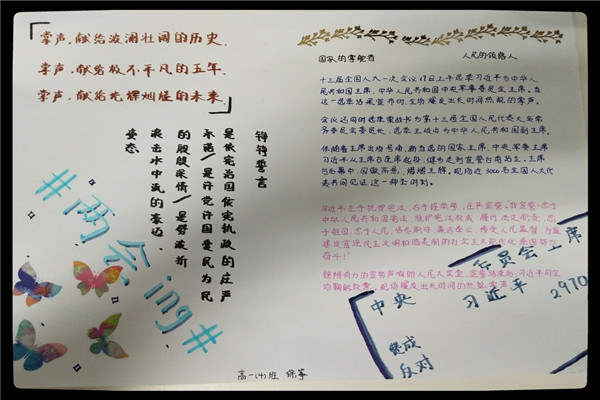 掌声,献给波澜壮阔的历史.
掌声,献给极不平凡的五年.
掌声,献给光辉灿烂的未来.
铮铮誓言
是依宪治国依宪执政的庄严
承诺/是许党许国爱民为民
的殷殷深情/是劈波斩
浪击水中流的豪迈
姿态
#两会ing#
国家的掌舵者 人民的领路人
十三届全国人大一次会议17日上午选举习近平为中华人
民共和国主席、中华人民共和国中央军事委员会主席。当
这一选举结果宣布时,全场爆发出长时间热烈的掌声。
会议还同时选举栗战书为第十三届全国人民代表大会常
务委员会委员长,选举王岐山为中华人民共和国副主席。
伴随着主席出场号角,新当选的国家主席、中央军委主席
习近平从主席台座席起身,健步走到宣誓台前站立。主席
台后幕中,国徽高悬,熠熠生辉。现场近3000名全国人大代
表共同见证这一神圣时刻。
习近平左手抚按宪法,右手握拳举,庄严宣誓:我宣誓:忠于
中华人民共和国宪法,维护宪法权威,履行法定职责,忠
于祖国、忠于人民,恪尽职守、廉洁奉公,接受人民监督,为富
强民主文明和谐美丽的社会主义现代化强国努力
奋斗!
铿锵有力的宣誓声响彻人民大会堂。宣誓结束后,习近平向全
场鞠躬致意,现场爆发出长时间的热烈掌声
委员会主席
中央 习近平 2970
赞成
反对
高一(4)班